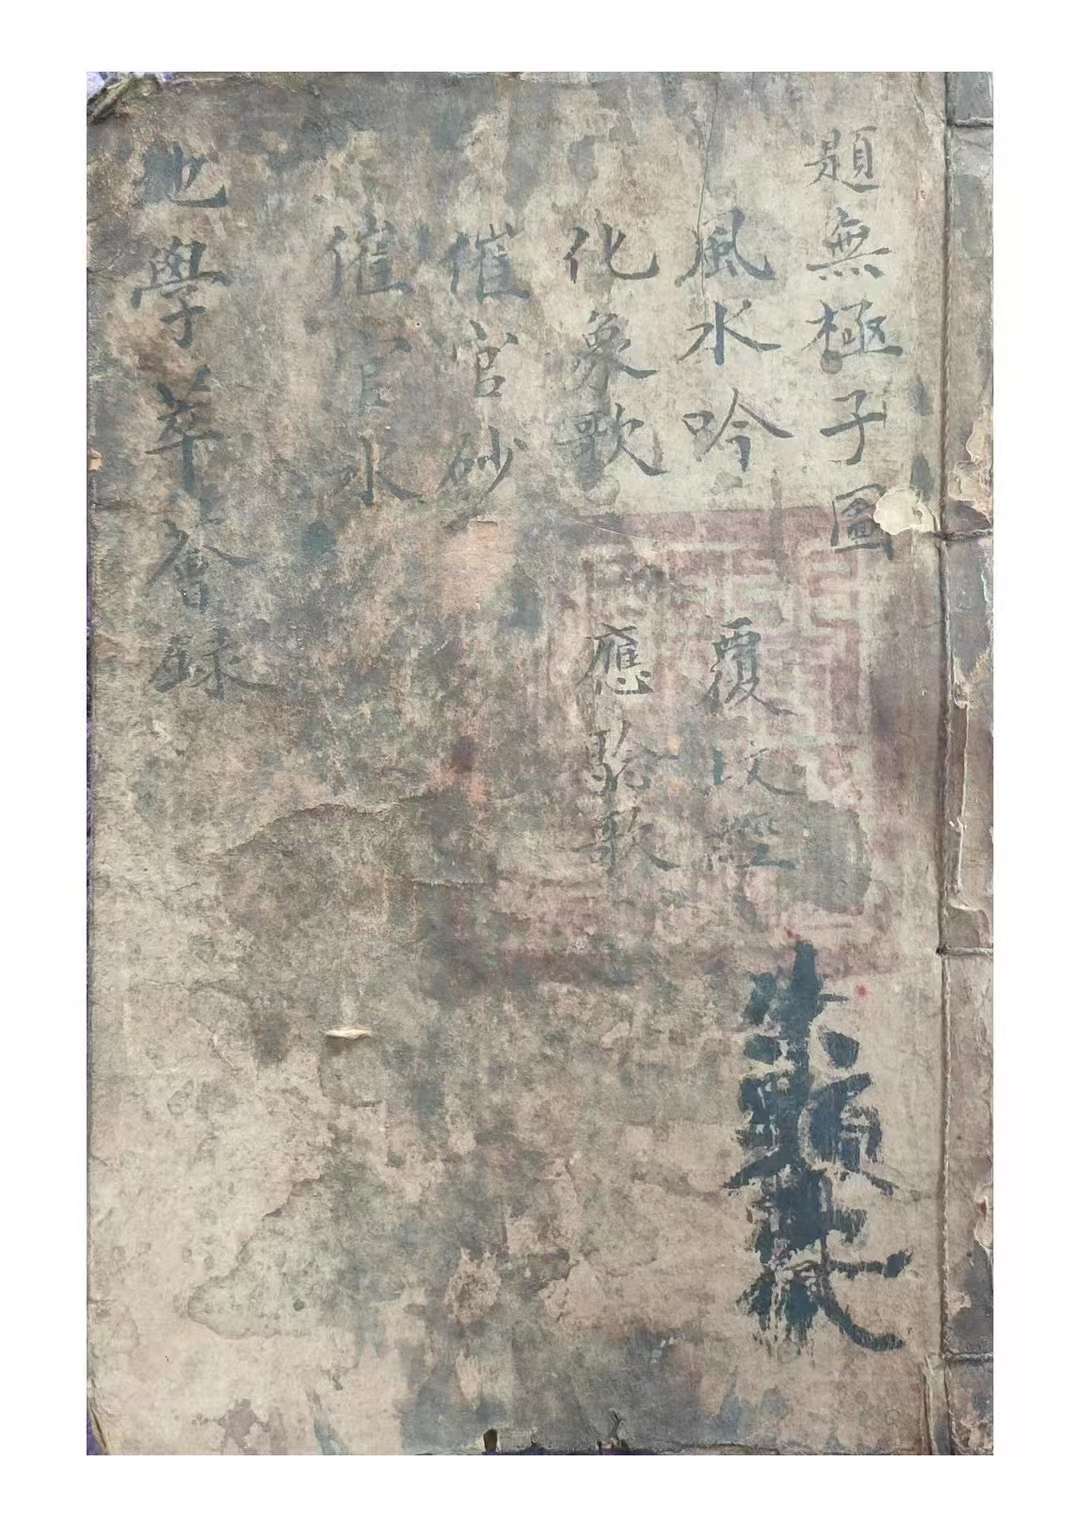 題無極子圖
風水吟
覆坟經
化象歌
應驗歌
催官砂
催官水
地學萃會録
朱顯